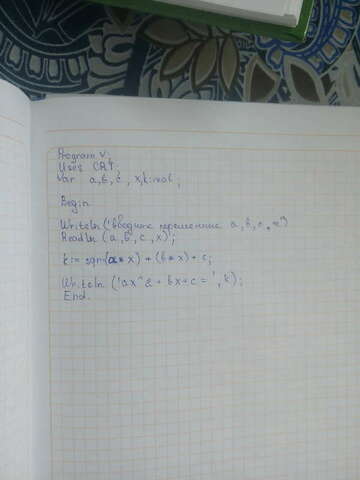 Program V;
Uses CRT;
Var a, b, c, x, k: real;
Begin
Writeln ('введите переменные a, b, c, x')
Readln (a, b, c, x);
k:= sqr(a*x) + (b*x) + c;
Writeln ('ax^2 + bx+c = ', k);
End.